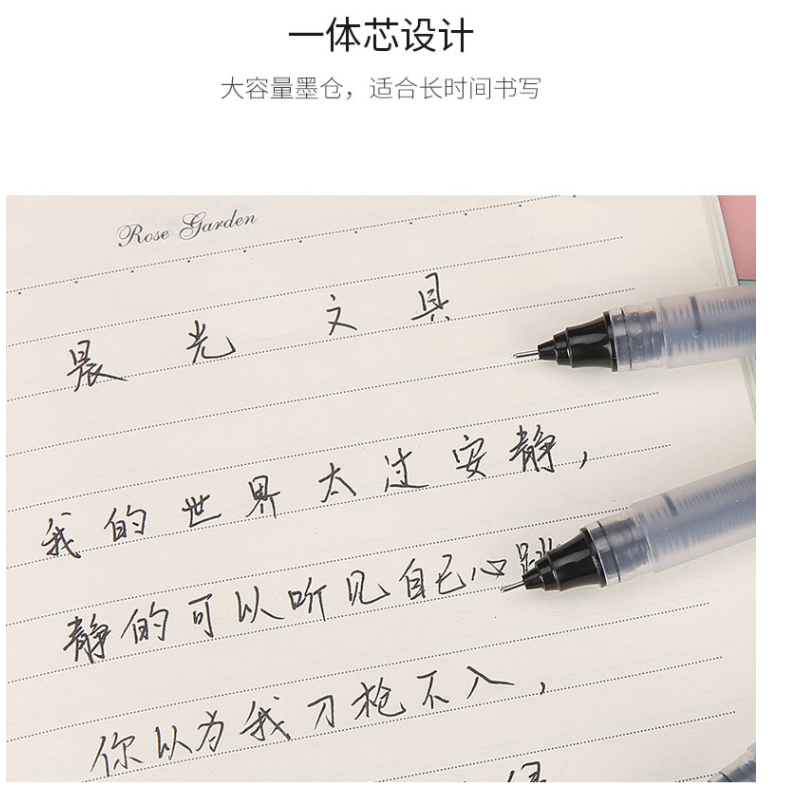 一体芯设计
大容量墨仓，适合长时间书写
Rose Garden
晨光文具
我的世界太过安静，
静的可以听见自己心跳
你以为我刀枪不入，